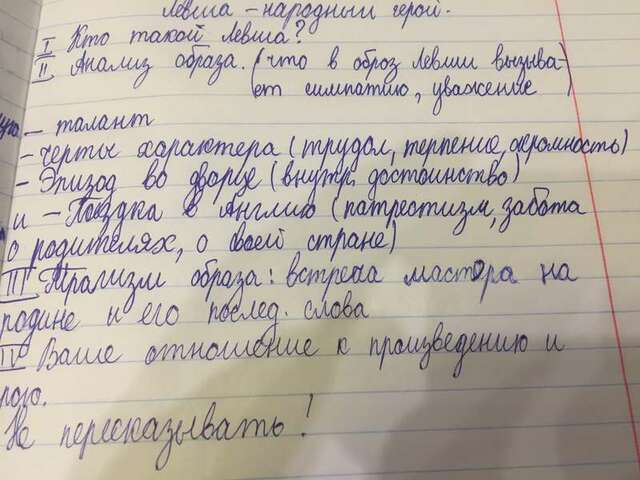 Левша - народный герой.
I Кто такой Левша?
II Анализ образа. (что в образ Левши вызыва-
ет симпатию, уважение)
- талант
- Черты характера (трудол, терпение скромность)
- Эпизод во дворце (внутр. достоинство)
- Поездка в Англию (патротизм, забота
о родителях, о своей стране)
III Трагизм образа: встреча мастера на
родине и его послед. слова
III Ваше отношение к произведению и
рою.
Не пересказывать!